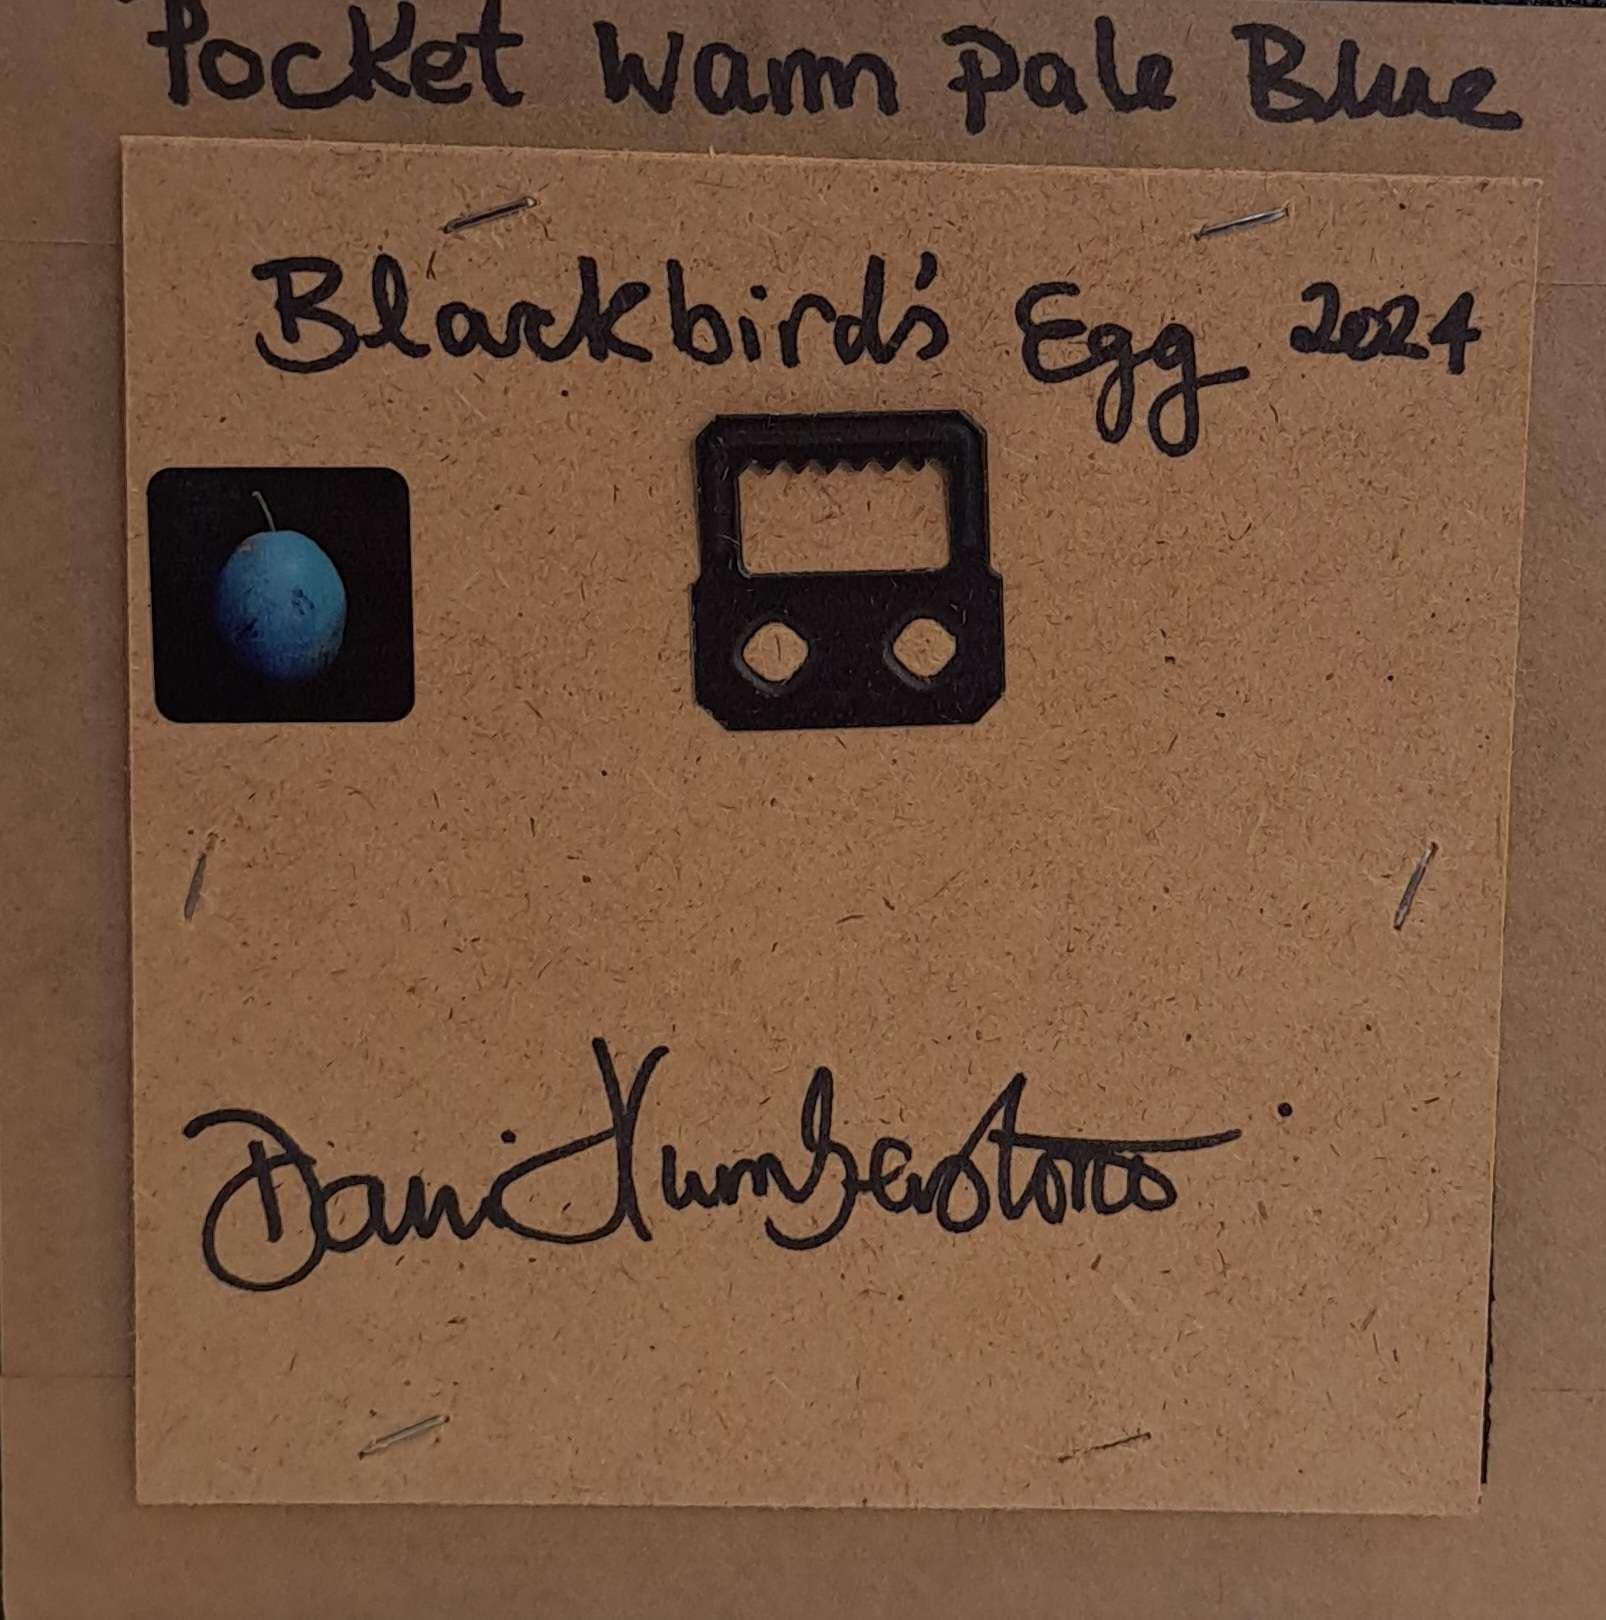 Pocket Warm Pale Blue
Blackbird's Egg 2024
David Humberstone